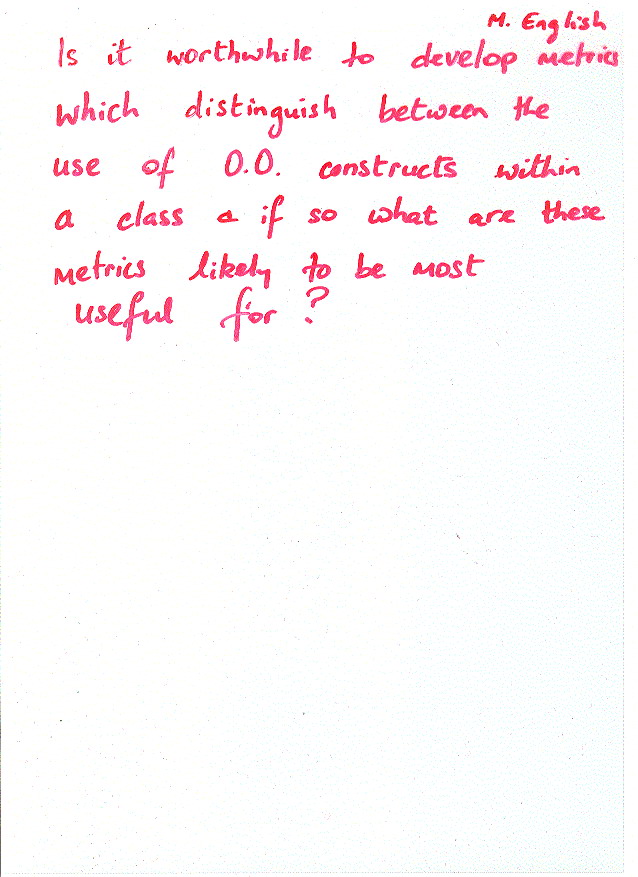 M. English
Is it worthwhile to develop metrics
which distinguish between the
use of O.O. constructs within
a class & if so what are these
metrics likely to be most
useful for?